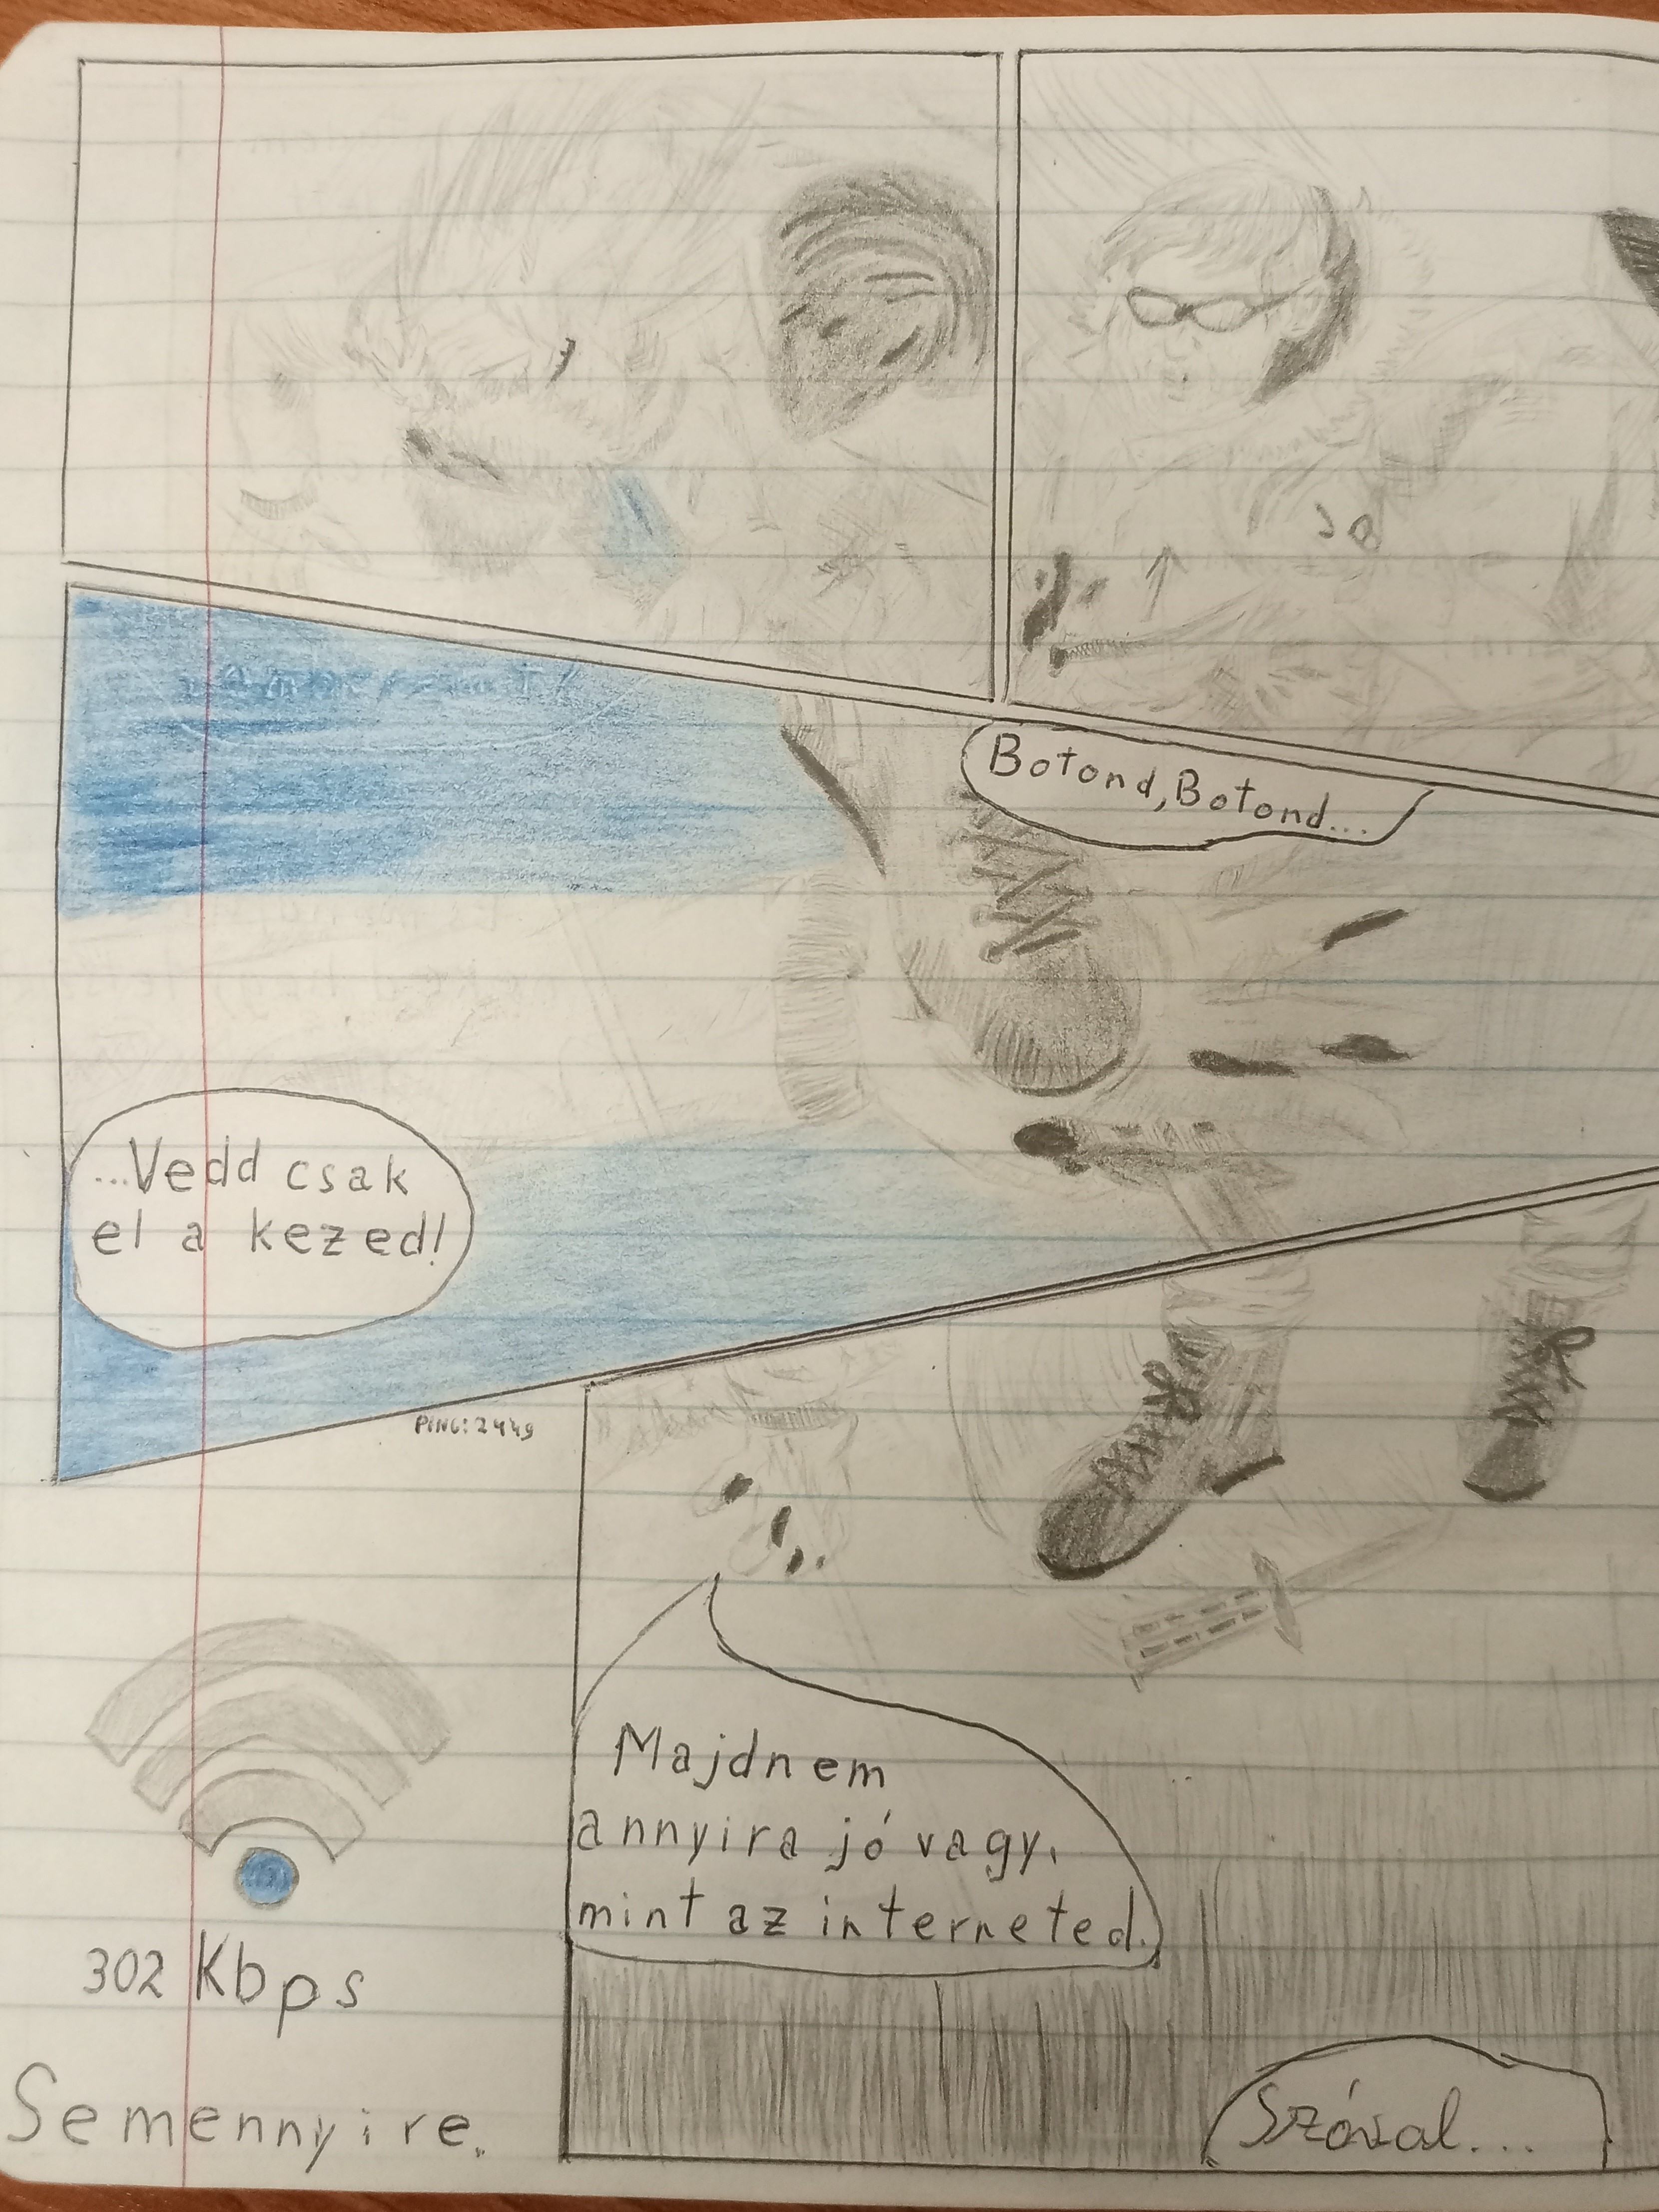 Botond, Botond...
...Vedd csak
el a kezed!
PING: 2449
Majdnem
annyira jó vagy,
mint az interneted.
302 Kbps
Semennyire.
Szóval...